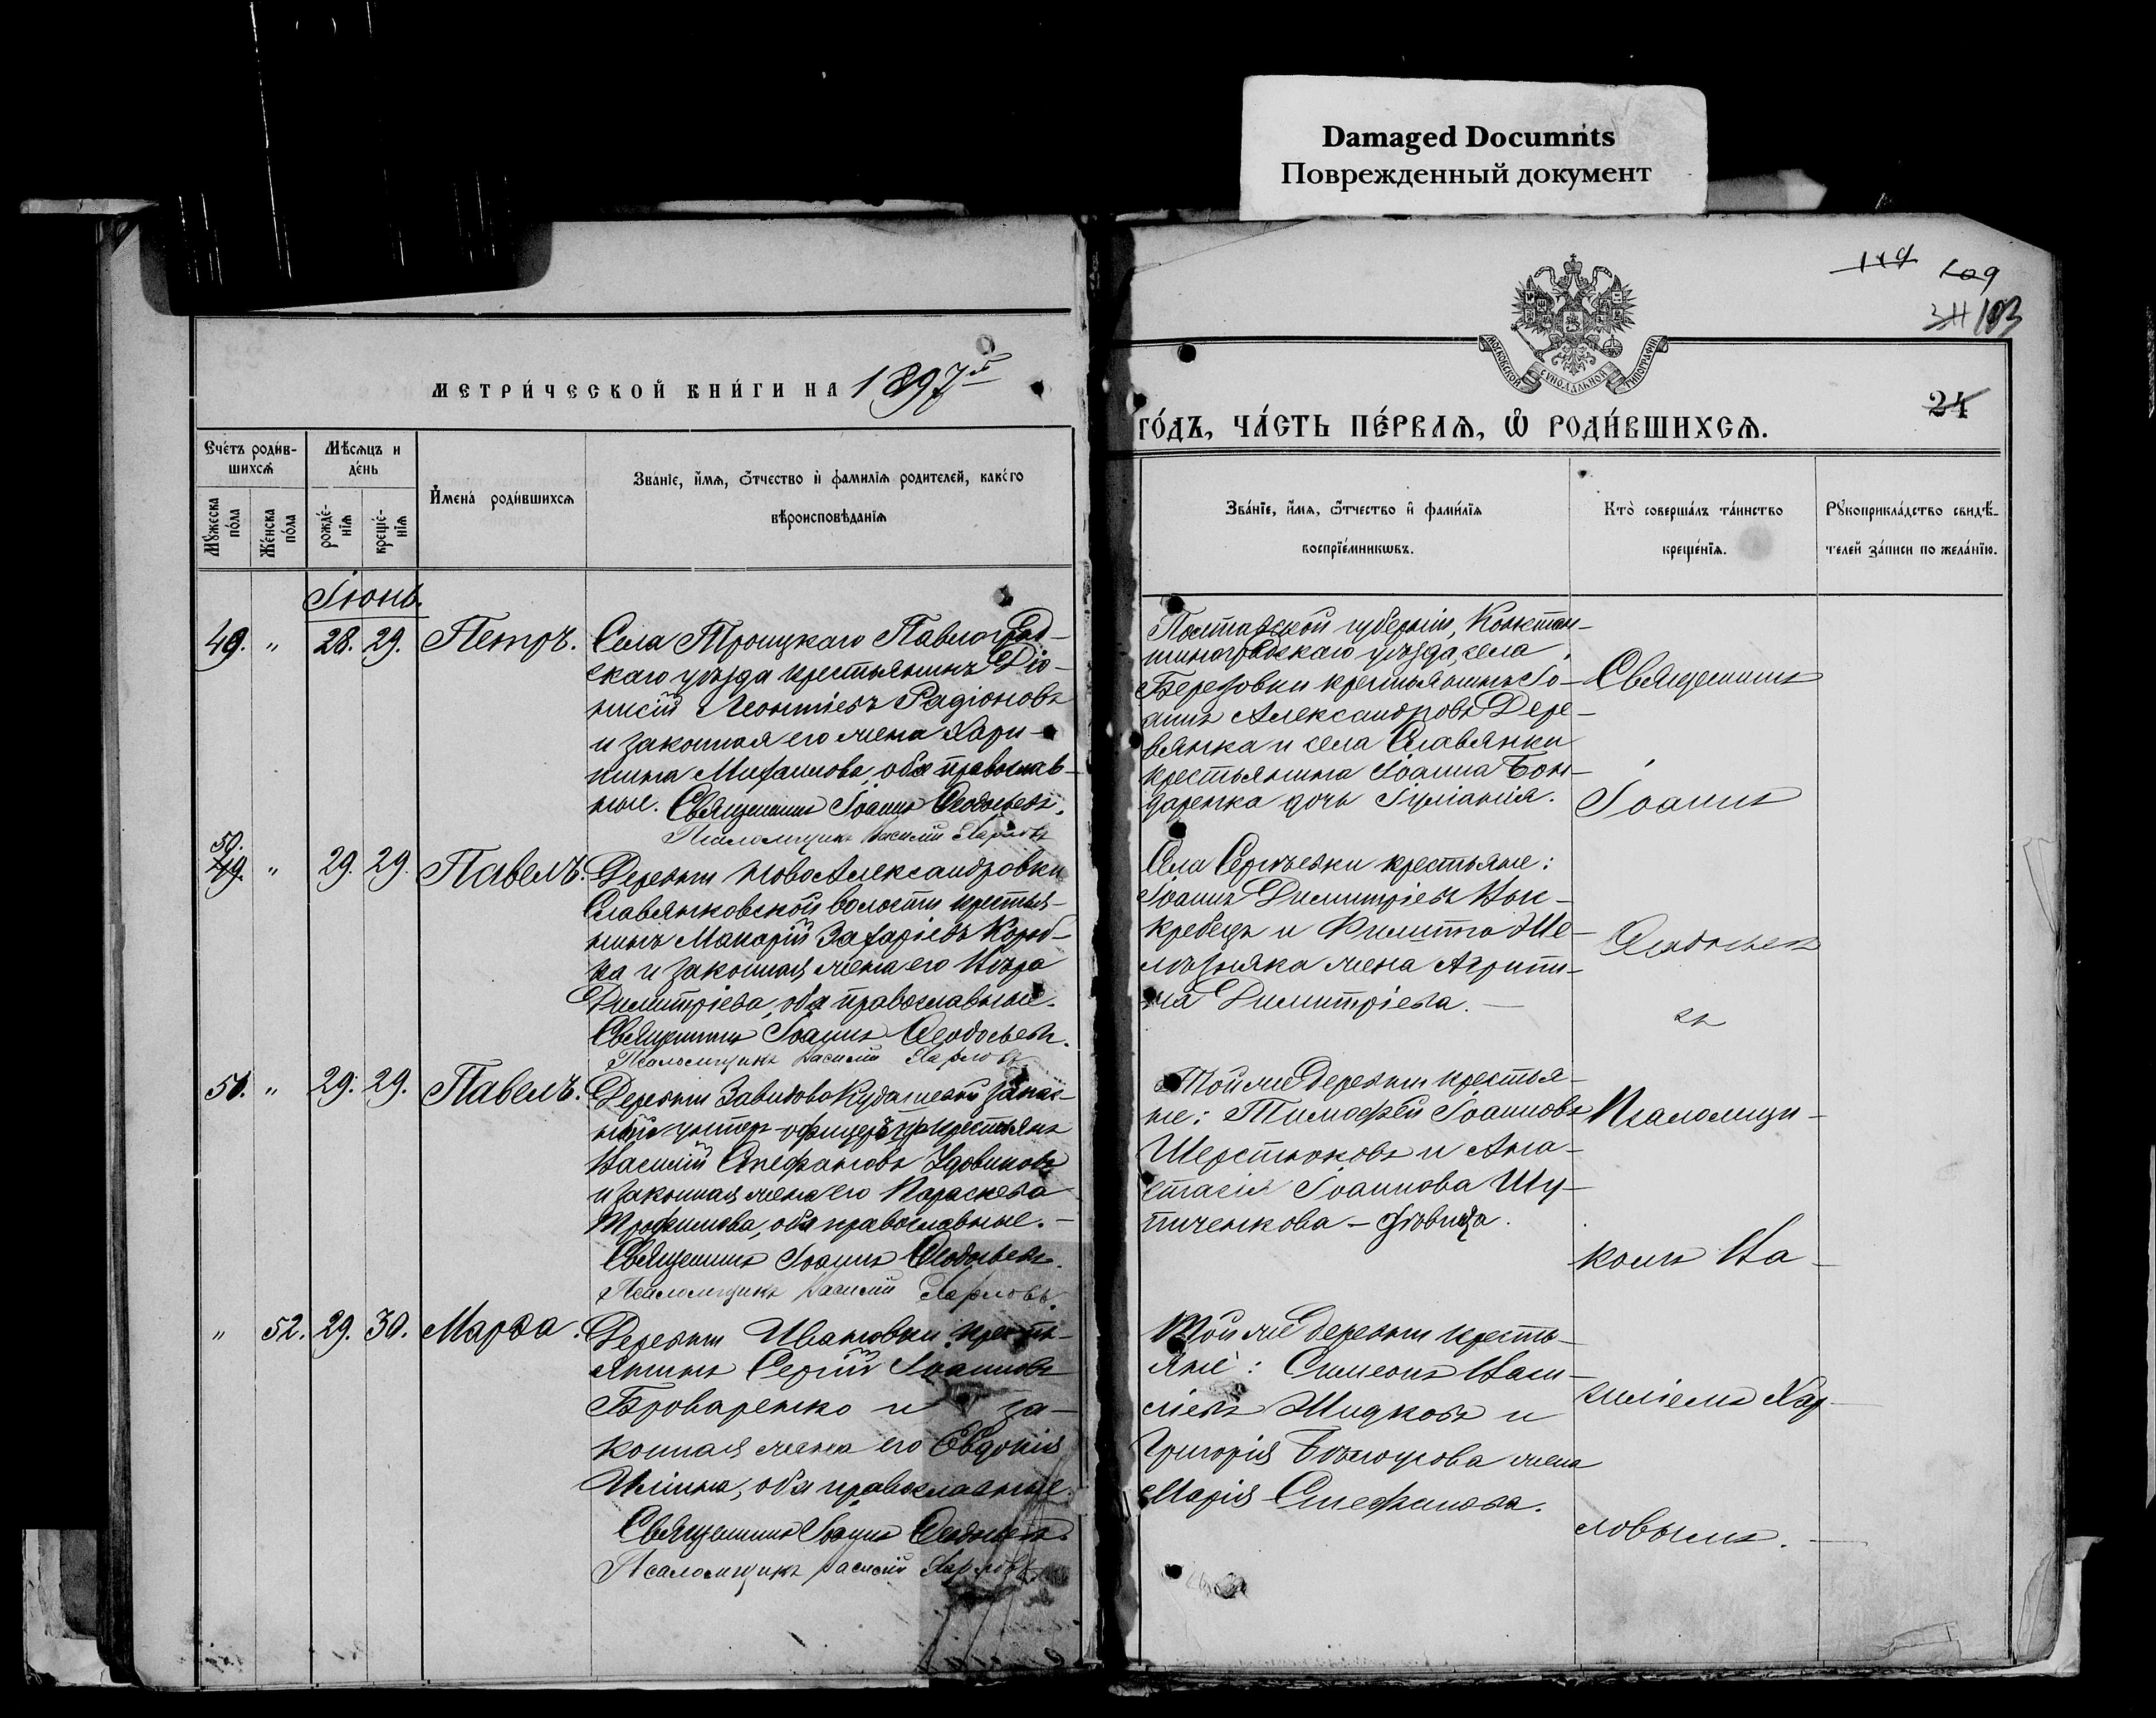 Damaged Documnts
Поврежденный документ
119 109
311 103
24
МЕТРИ́ЧЕСКОЙ КНИ́ГИ НА 1897й
ГО́ДЪ, ЧА́СТЬ ПЕ́РВАѦ, Ѽ РОДИ́ВШИХСѦ.
МОСКОВСКОЙ СѴНОДАЛЬНОЙ ТИПОГРАФІИ
Сче́тъ роди́в-
шихсѧ
Мѣсѧцъ и
де́нь
Мꙋ́жеска
по́ла
Же́нска
по́ла
рожде́-
нїѧ
креще́-
нїѧ
И҆мена̀ роди́вшихсѧ
Зва́нїе, и҆́мѧ, ѻ҆́тчество и҆ фами́лїѧ роди́телей, како́гѡ
вѣроисповѣ́данїѧ
Зва́нїе, и҆́мѧ, ѻ҆́тчество и҆ фами́лїѧ
воспрїе́мникѡвъ.
Кто̀ соверша́лъ та́инство
креще́нїѧ.
Рꙋкоприкла́дство свидѣ́-
телей за́писи по жела́нїю.
Іюнь.
49. " 28. 29. Петръ.
Села Троицкаго Павлоград-
скаго уѣзда крестьянинъ Діо-
нисій Леонтіевъ Радіоновъ
и законная его жена Хари-
тина Михаилова, оба православ-
ные. Священникъ Іоаннъ Ѳеодосьевъ.
Псаломщикъ Василій Харловъ
Полтавской губерніи, Констан-
тиноградскаго уѣзда, села
Березовки крестьянинъ Іо-
аннъ Александровъ Дере-
вянка и села Славянки
крестьянина Іоанна Бон-
даренка дочь Іуліанія.
50.
49. " 29. 29. Павелъ.
Деревни НовоАлександровки
Славянковской волости крестья-
нинъ Макарій Захаріевъ
и законная жена его Вѣра
Димитріева, оба православные.
Священникъ Іоаннъ Ѳеодосьевъ.
Псаломщикъ Василій Харловъ
Села Сергѣевки крестьяне:
Іоаннъ Димитріевъ
и Филиппа Ше-
жена Агрипи-
на Димитріева. —
51. " 29. 29. Павелъ.
Деревни ЗавидовоКудашевки запас-
ный унтеръ-офицеръ изъ крестьянъ
Василій Стефановъ Удовиковъ
и законная жена его Параскева
Трофимова, оба православные. —
Священникъ Іоаннъ Ѳеодосьевъ.
Псаломщикъ Василій Харловъ.
Той же деревни крестья-
не: Тимофей Іоанновъ
Шерстюковъ и Ана-
стасія Іоаннова Шу-
пиченкова — дѣвица.
" 52. 29. 30. Марѳа.
Деревни Ивановки кресть-
янинъ Сергій Іоанновъ
Броваренко и за-
конная жена его Евдокія
Иліина, оба православные.
Священникъ Іоаннъ Ѳеодосьевъ.
Псаломщикъ Василій Харловъ
Той же деревни кресть-
яне: Симеонъ Васи-
ліевъ Жидковъ и
Григорія Бѣлоусова жена
Марія Стефанова.
Священникъ
Іоаннъ
Ѳеодосьевъ
съ
Псаломщи-
комъ Ва-
силіемъ Хар-
ловымъ. —